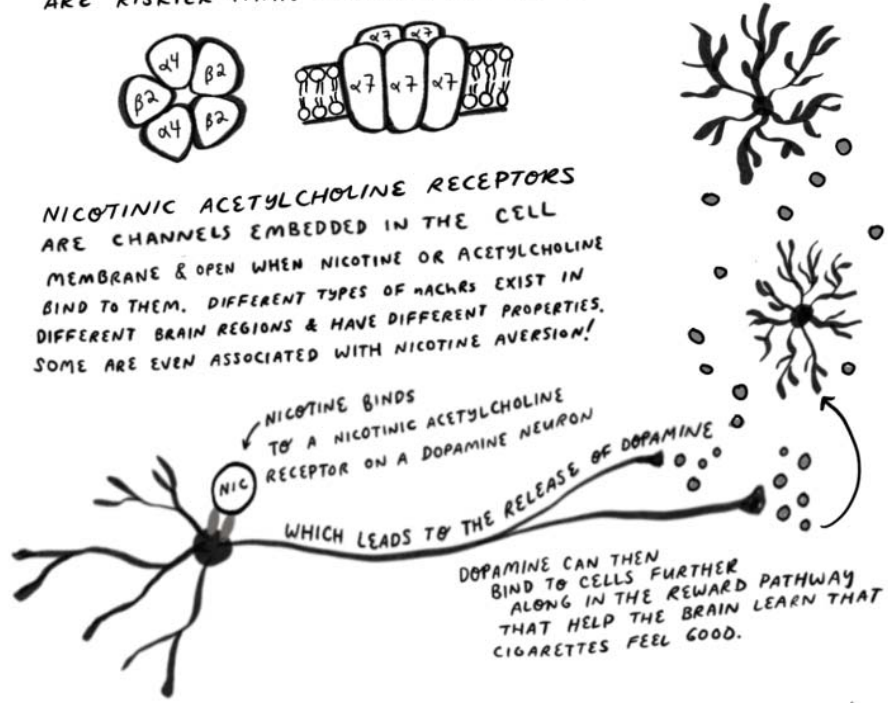 ARE RISKIER
α4
β2
β2
α4
β2
α7 α7
α7 α7 α7
NICOTINIC ACETYLCHOLINE RECEPTORS
ARE CHANNELS EMBEDDED IN THE CELL
MEMBRANE & OPEN WHEN NICOTINE OR ACETYLCHOLINE
BIND TO THEM. DIFFERENT TYPES OF nAChRs EXIST IN
DIFFERENT BRAIN REGIONS & HAVE DIFFERENT PROPERTIES.
SOME ARE EVEN ASSOCIATED WITH NICOTINE AVERSION!
NICOTINE BINDS
TO A NICOTINIC ACETYLCHOLINE
RECEPTOR ON A DOPAMINE NEURON
NIC
WHICH LEADS TO THE RELEASE OF DOPAMINE
DOPAMINE CAN THEN
BIND TO CELLS FURTHER
ALONG IN THE REWARD PATHWAY
THAT HELP THE BRAIN LEARN THAT
CIGARETTES FEEL GOOD.